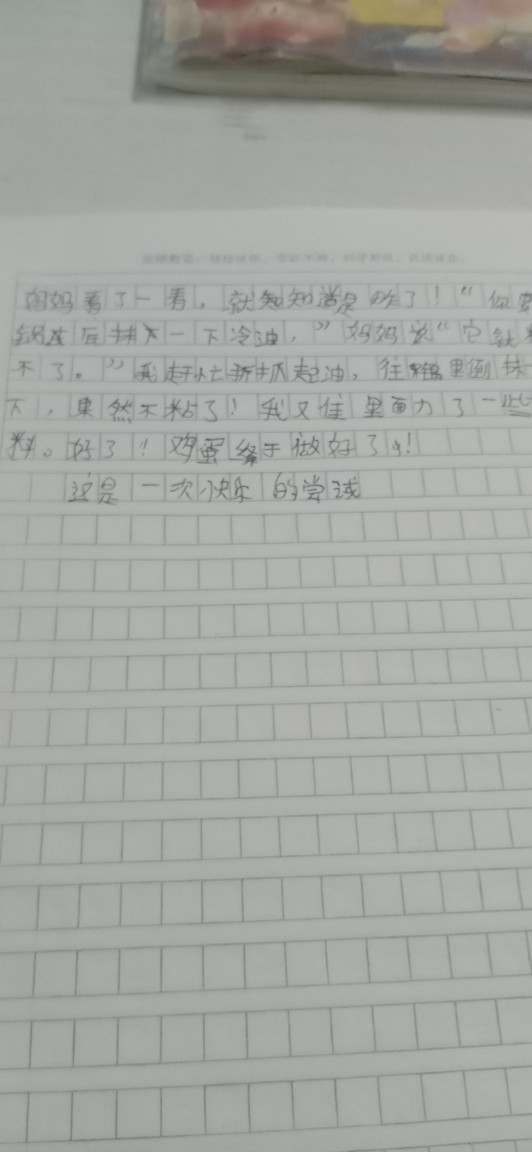 妈妈看了一看，就知知道是咋了！“你要
锅底后抹一下冷油，”妈妈说“它就
不了。”我赶忙抓起油，往锅里倒抹
下，果然不粘了！我又往里面加了一些
料。好了！鸡蛋终于做好了！
这是一次快乐的尝试